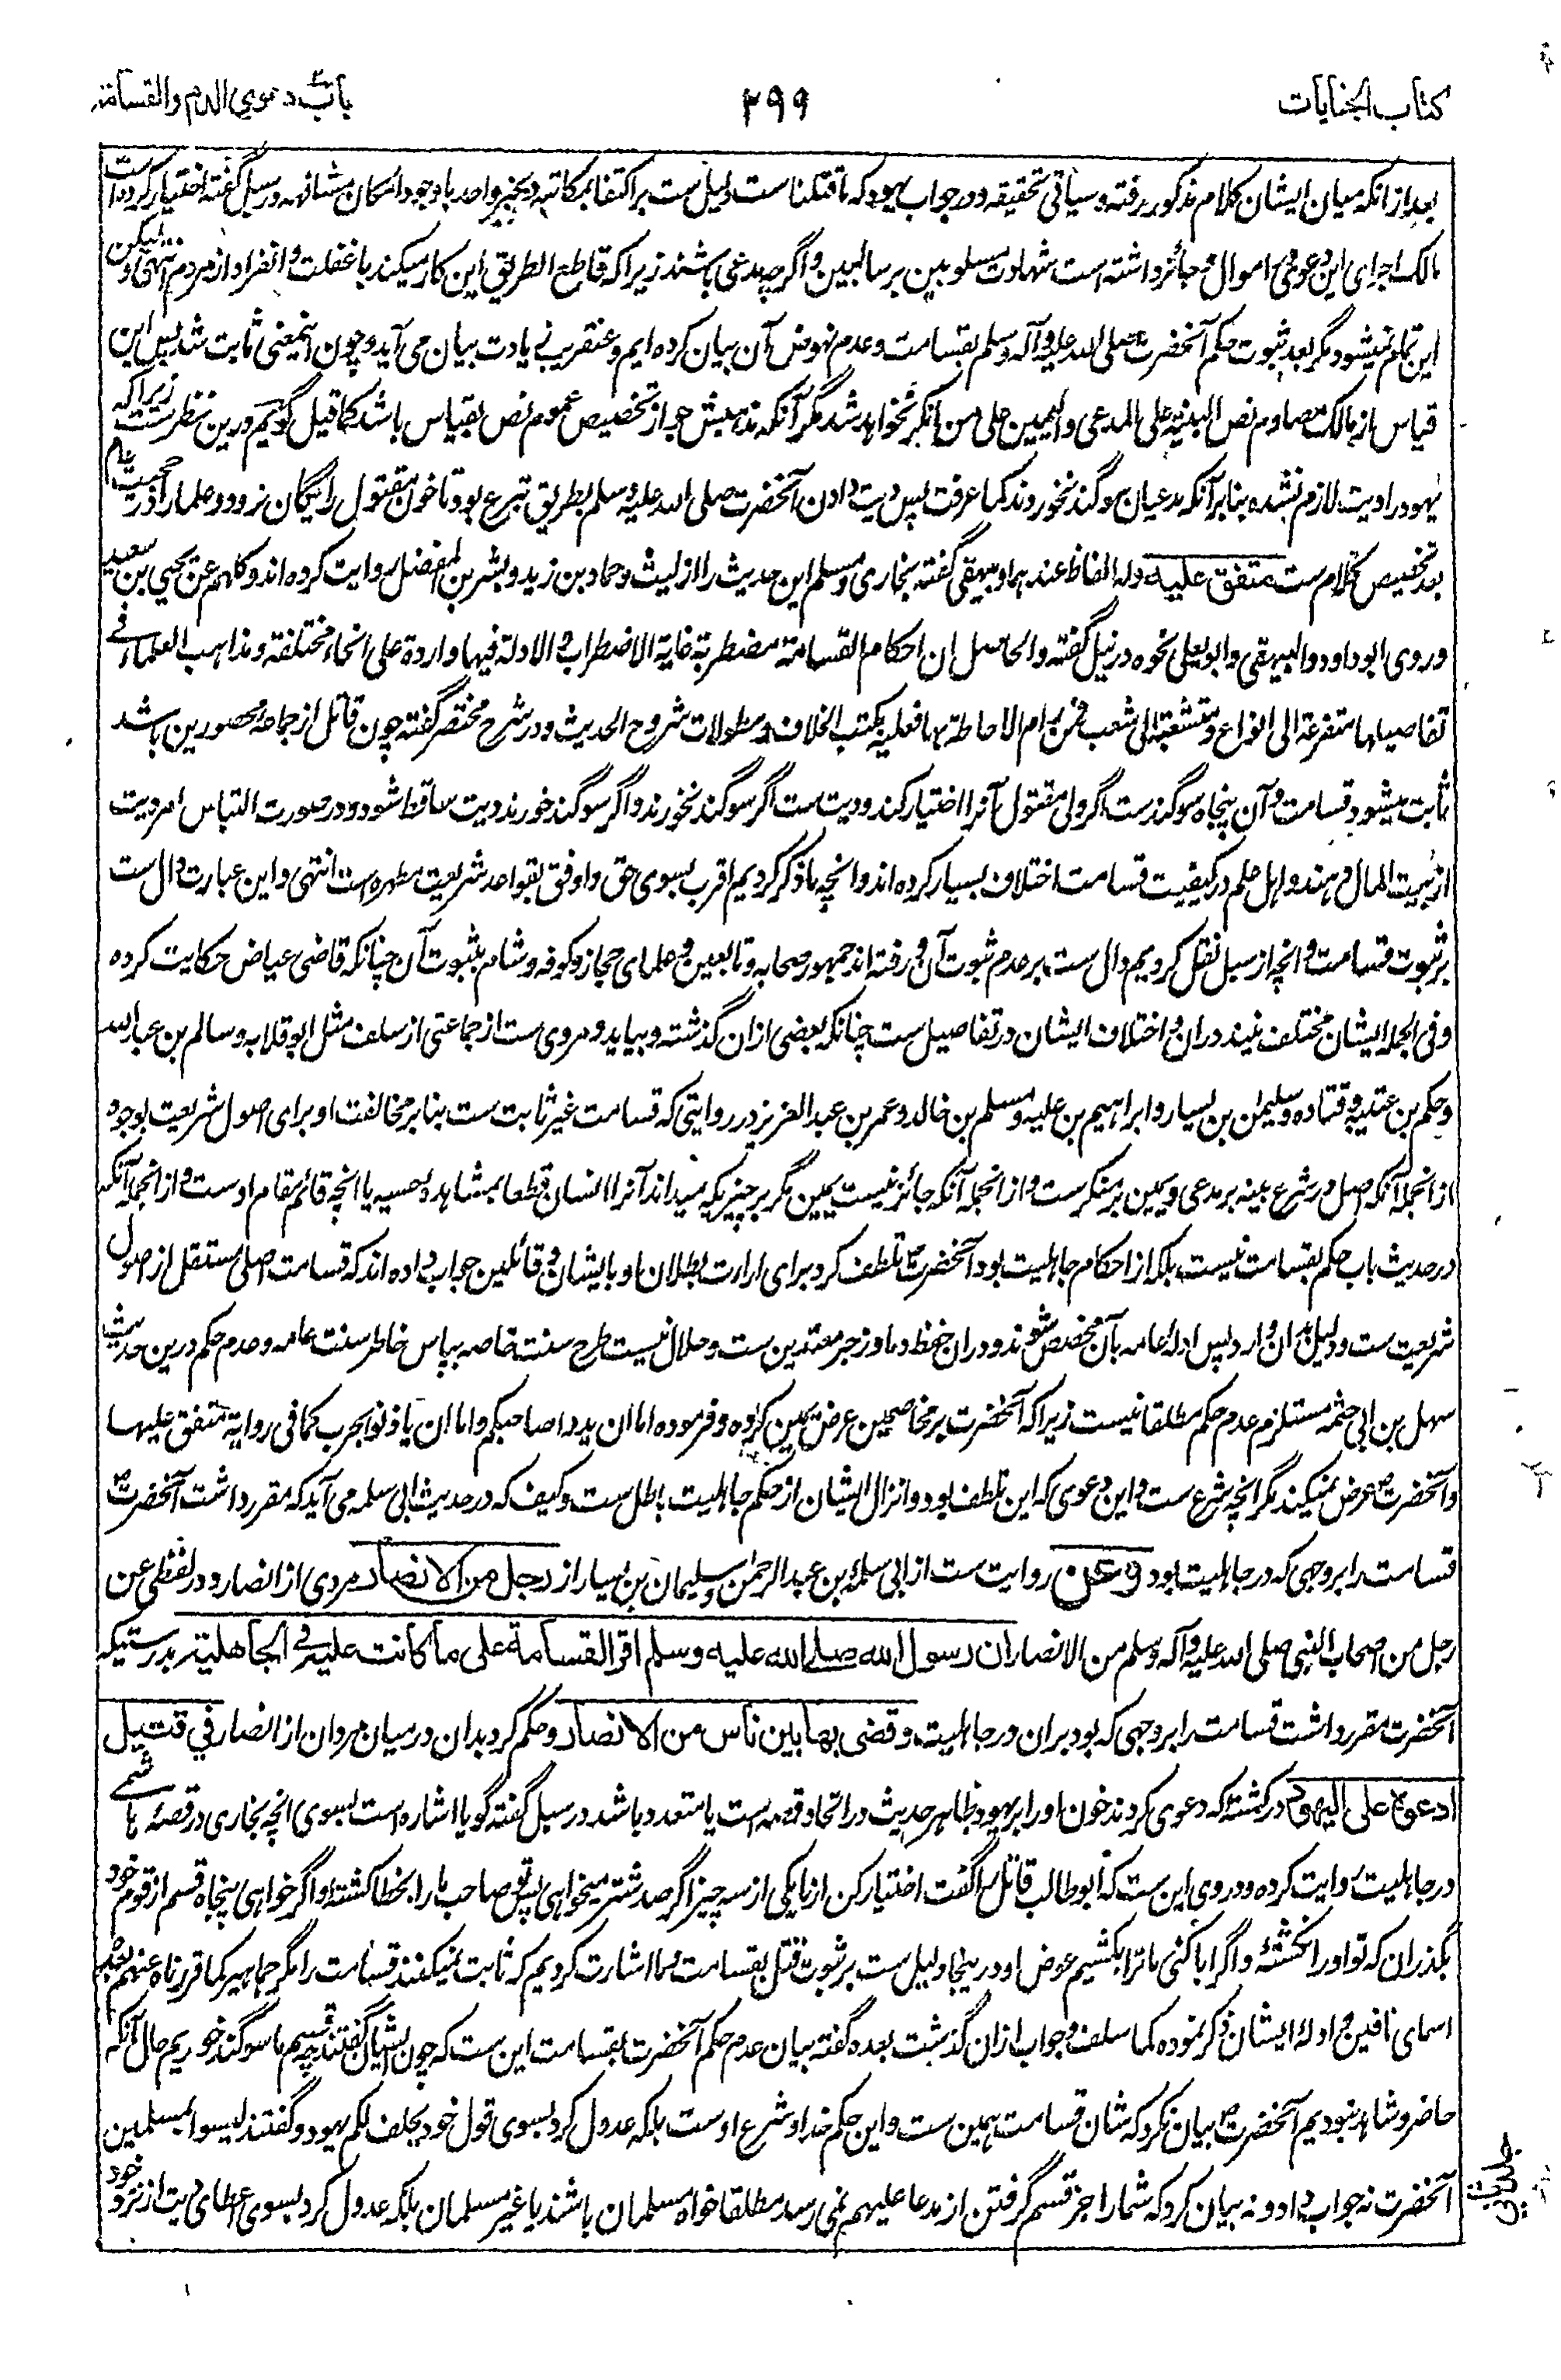 کتاب الجنایات ۲۹۹ باب دعوی الدم والقسامة
بعد از انکه میان ایشان کلام مذکور رفته وسیاتی تحقیقه ودر جواب یهود که ما قتلنا ست دلیل ست بر اکتفا بمکاتبه وبخبر واحد با وجود امکان مشافهه ودر سبل گفته اختیار کرده است
مالک اجرای این دعوی در اموال و جائز داشته است شهادت مسلوبین بر سالبین و اگرچه مدعی باشند زیرا که قاطع الطریق این کار میکند با غفلت و انفراد از مردم انتهی ولیکن
این تمام نمیشود مگر بعد ثبوت حکم آنحضرت صلی الله علیه وآله وسلم بقسامت وعدم نهوض آن بیان کرده ایم و عنقریب زیادت بیان می آید و چون اینمعنی ثابت شد پس این
قیاس از مالک مصادم نص البینة علی المدعی والیمین علی من انکر نخواهد شد مگر آنکه مذهبش جواز تخصیص عموم نص بقیاس باشد کما قیل گویم درین نظر ست زیرا که
یهود را دیت لازم نشده بنا بر آنکه مدعیان سوگند نخوردند کما عرفت پس دیت دادن آنحضرت صلی الله علیه وسلم بطریق تبرع بود تا خون مقتول رائیگان نرود و علما را در حجیت عام
بعد تخصیص کلام ست متفق علیه وله الفاظ عندهما وبیهقی گفته بخاری ومسلم این حدیث را از لیث وحماد بن زید وبشر بن المفضل روایت کرده اند وکلهم عن یحیی بن سعید
وروی ابو داود والبیهقی وابو یعلی نحوه در نیل گفته والحاصل ان احکام القسامة مضطربة غایة الاضطراب والادلة فیها واردة علی انحاء مختلفة ومذاهب العلماء فی
تفاصیلها متفرعة الی انواع ومتشعبة الی شعب فمن رام الاحاطة بها فعلیه بکتب الخلاف ومطولات شروح الحدیث ودر شرح مختصر گفته چون قاتل از جماعهٔ محصورین باشد
ثابت میشود قسامت و آن پنجاه سوگند ست اگر ولی مقتول آنرا اختیار کند ودیت ست اگر سوگند نخورند و اگر سوگند خورند دیت ساقط شود ودر صورت التباس امر دیت
از بیت المال دهند و اهل علم در کیفیت قسامت اختلاف بسیار کرده اند وانچه ما ذکر کردیم اقرب بسوی حق واوفق بقواعد شریعت مطهره ست انتهی واین عبارت دال ست
بر ثبوت قسامت وانچه از سبل نقل کردیم دال ست بر عدم ثبوت آن و رفته اند جمهور صحابه وتابعین وعلمای حجاز وکوفه وشام بثبوت آن چنانکه قاضی عیاض حکایت کرده
وفی الجمله ایشان مختلف نیند دران و اختلاف ایشان در تفاصیل ست چنانکه بعضی ازان گذشته وبیاید ومروی ست از جماعتی از سلف مثل ابو قلابه وسالم بن عبدالله
وحکم بن عتیبه وقتاده وسلیمٰن بن یسار وابراهیم بن علیه ومسلم بن خالد وعمر بن عبدالعزیز در روایتی که قسامت غیر ثابت ست بنا بر مخالفت او برای اصول شریعت بوجوه
از انجمله آنکه اصل در شرع بینه بر مدعی ویمین بر منکر ست و از انجمله آنکه جائز نیست یمین مگر بر چیزیکه میداند آنرا انسان قطعا بمشاهدهٔ حسیه یا انچه قائم مقام اوست و از انجمله آنکه
در حدیث باب حکم بقسامت نیست بلکه از احکام جاهلیت بود آنحضرت تلطف کرد برای ارارت بطلان او بایشان و قائلین جواب داده اند که قسامت اصلی مستقل از اصول
شریعت ست ودلیل بدان وارد پس ادلهٔ عامه بآن مخصص شوند ودران حفظ دما وزجر معتدین ست وحلال نیست طرح سنت خاصه بپاس خاطر سنت عامه وعدم حکم درین حدیث
سهل بن ابی حثمه مستلزم عدم حکم مطلقا نیست زیرا که آنحضرت بر مخاصمین عرض یمین کرده وفرموده اما ان یدوا صاحبکم واما ان یاذنوا بحرب کما فی روایة متفق علیها
و آنحضرت عرض نمیکند مگر انچه شرع ست واین دعوی که این تلطف بود وانزال ایشان از حکم جاهلیت باطل ست وکیف که در حدیث ابی سلمه می آید که مقرر داشت آنحضرت
قسامت را بروجهی که در جاهلیت بود وعن روایت ست از ابی سلمة بن عبدالرحمٰن وسلیمان بن یسار از رجل من الانصار مردی از انصار ودر لفظی عن
رجل من اصحاب النبی صلی الله علیه وآله وسلم من الانصار ان رسول الله صلی الله علیه وسلم اقر القسامة علی ما کانت علیه فی الجاهلیة بدرستیکه
آنحضرت مقرر داشت قسامت را بروجهی که بود بران در جاهلیت وقضی بها بین ناس من الانصار وحکم کرد بدان در میان مردان از انصار فی قتیل
ادعوه علی الیهود در کشته که دعوی کردند خون او را بر یهود ظاهر حدیث در اتحاد قصه ست یا متعدد باشد در سبل گفته گویا اشاره است بسوی انچه بخاری در قصهٔ هاشمی
در جاهلیت روایت کرده ودروی این ست که ابو طالب قاتل را گفت اختیار کن از ما یکی از سه چیز اگر صد شتر میخواهی پس تو صاحب ما را بخطا کشتهٔ واگر خواهی پنجاه قسم از قوم خود
بگذران که تو او را نکشتهٔ و اگر ابا کنی ما ترا بکشیم عوض او درینجا دلیل ست بر ثبوت قتل بقسامت وما اشارت کردیم که ثابت نمیکند قسامت را مگر جماهیر کما قررناه عنهم بعده
اسمای نافین و ادلهٔ ایشان ذکر نموده کما سلف وجواب ازان گذشت بعده گفته بیان عدم حکم آنحضرت بقسامت این ست که چون ایشان گفتند چه قسم ما سوگند خوریم حال آنکه
حاضر وشاهد نبودیم آنحضرت بیان نکرد که شان قسامت همین ست واین حکم خدا وشرع اوست بلکه عدول کرد بسوی قول خود یحلف لکم یهود وگفتند لیسوا بمسلمین
آنحضرت نه جواب داد ونه بیان کرد که شما را جز قسم گرفتن از مدعا علیهم نمی رسد مطلقا خواه مسلمان باشند یا غیر مسلمان بلکه عدول کرد بسوی اعطای دیت از نزد خود